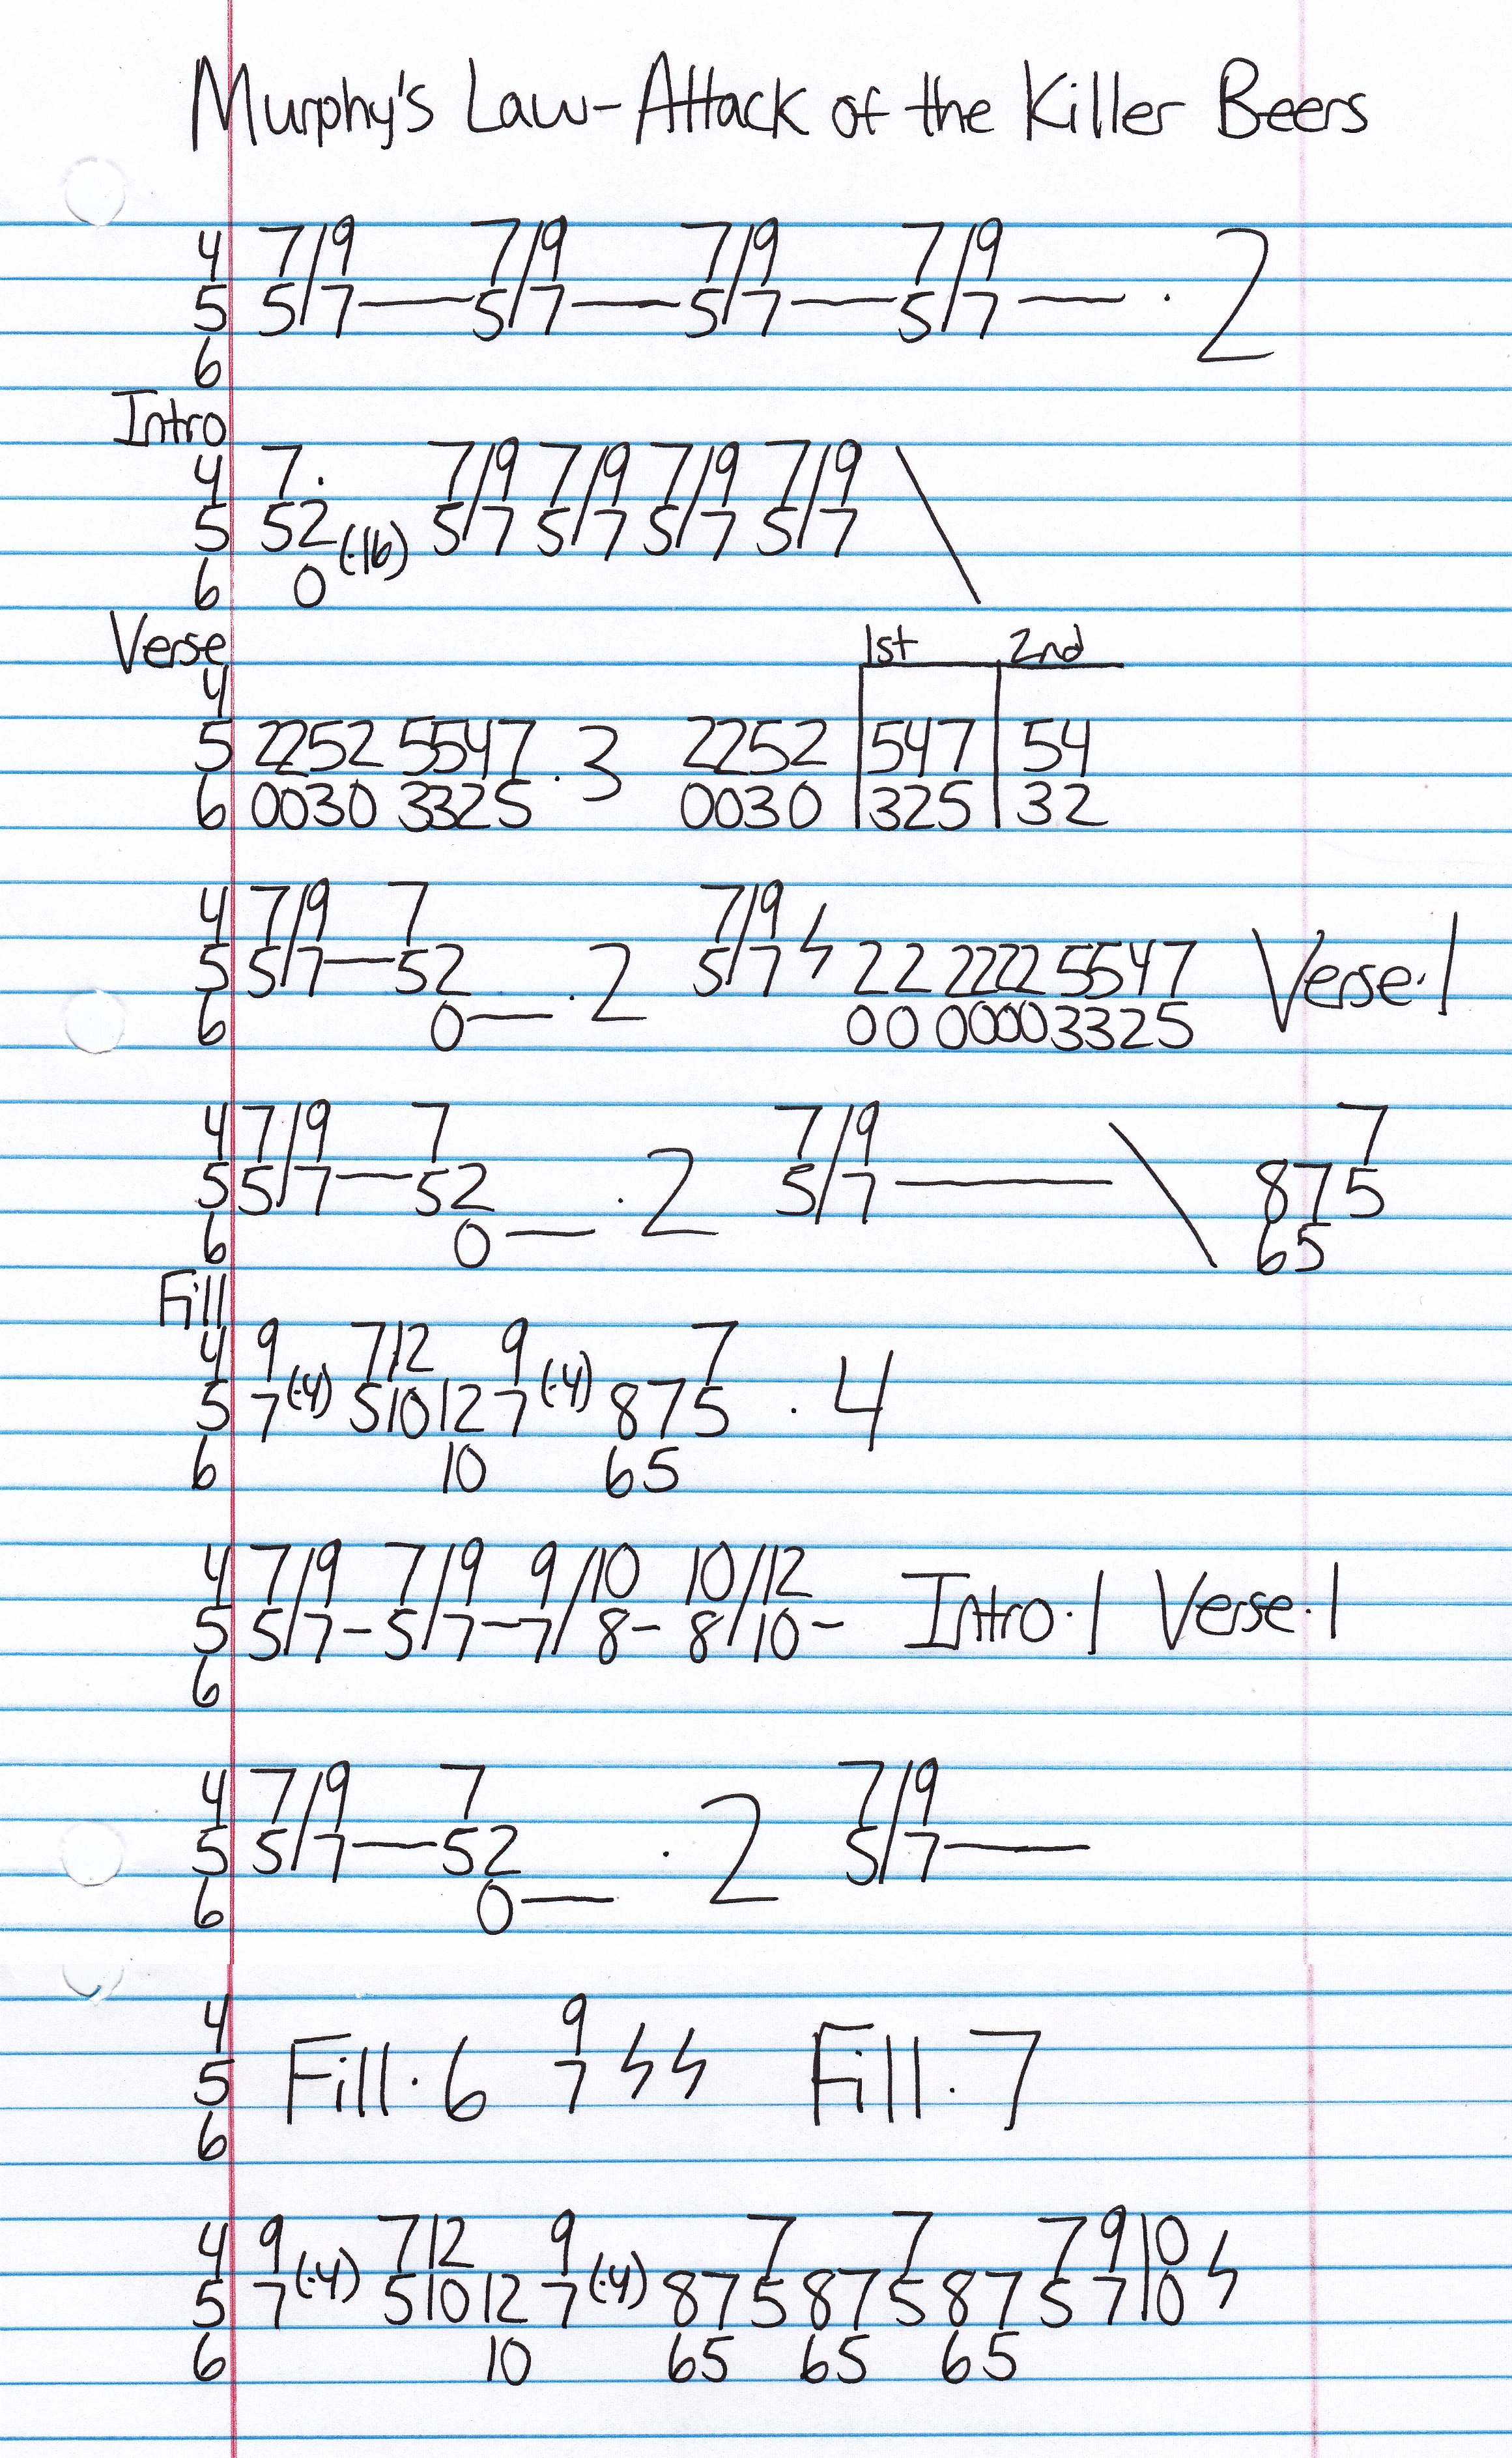 Murphy's Law-Attack of the Killer Beers
4 7/9 7/9 7/9 7/9
5 5/7—5/7—5/7—5/7— · 2
6
Intro
4 7 · 7/9 7/9 7/9 7/9 \
5 52 (·16) 5/7 5/7 5/7 5/7
6 0
Verse 1st 2nd
4
5 2252 5547 · 3 2252 547 54
6 0030 3325 0030 325 32
4 7/9 7 7/9
5 5/7—52 · 2 5/7 ϟ 22 2222 5547 Verse·1
6 0— 00 00003325
4 7/9 7 7/9 \ 7
5 5/7—52 · 2 5/7— 875
6 0— 65
Fill
4 9 712 9 7
5 7(·4) 51012 7(·4) 875 · 4
6 10 65
4 7/9 7/9 9/10 10/12
5 5/7-5/7-7/8- 8/10- Intro·1 Verse·1
6
4 7/9 7 7/9
5 5/7—52 · 2 5/7—
6 0—
4 9
5 Fill·6 7 ϟ ϟ Fill·7
6
4 9 712 9 7 7 7 9 | 0
5 7(·4) 51012 7(·4) 875 875 875 7 | 0 ϟ
6 10 65 65 65